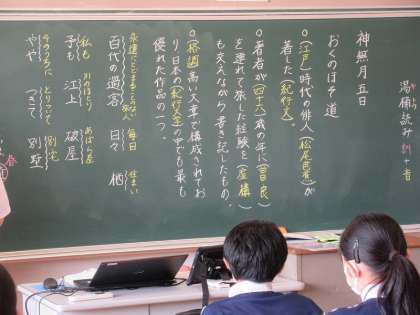 湯桶読み 訓+音
神無月五日
おくのほそ道
○(江戸)時代の俳人(松尾芭蕉)が
著した(紀行文)。
○著者が(四十六)歳の年に(曽良)
を連れて旅した経験を(虚構)
も交えながら書き記したもの。
○(格調)高い文章で構成されてお
り、日本の(紀行文)の中でも最も
優れた作品の一つ。
永遠にとどまることのない旅人 毎日 住まい
百代の過客 日々 栖
私も 川のほとり あばら屋
予も 江上 破屋
そのうちに とりつく 別宅
やや つきて 別墅
春